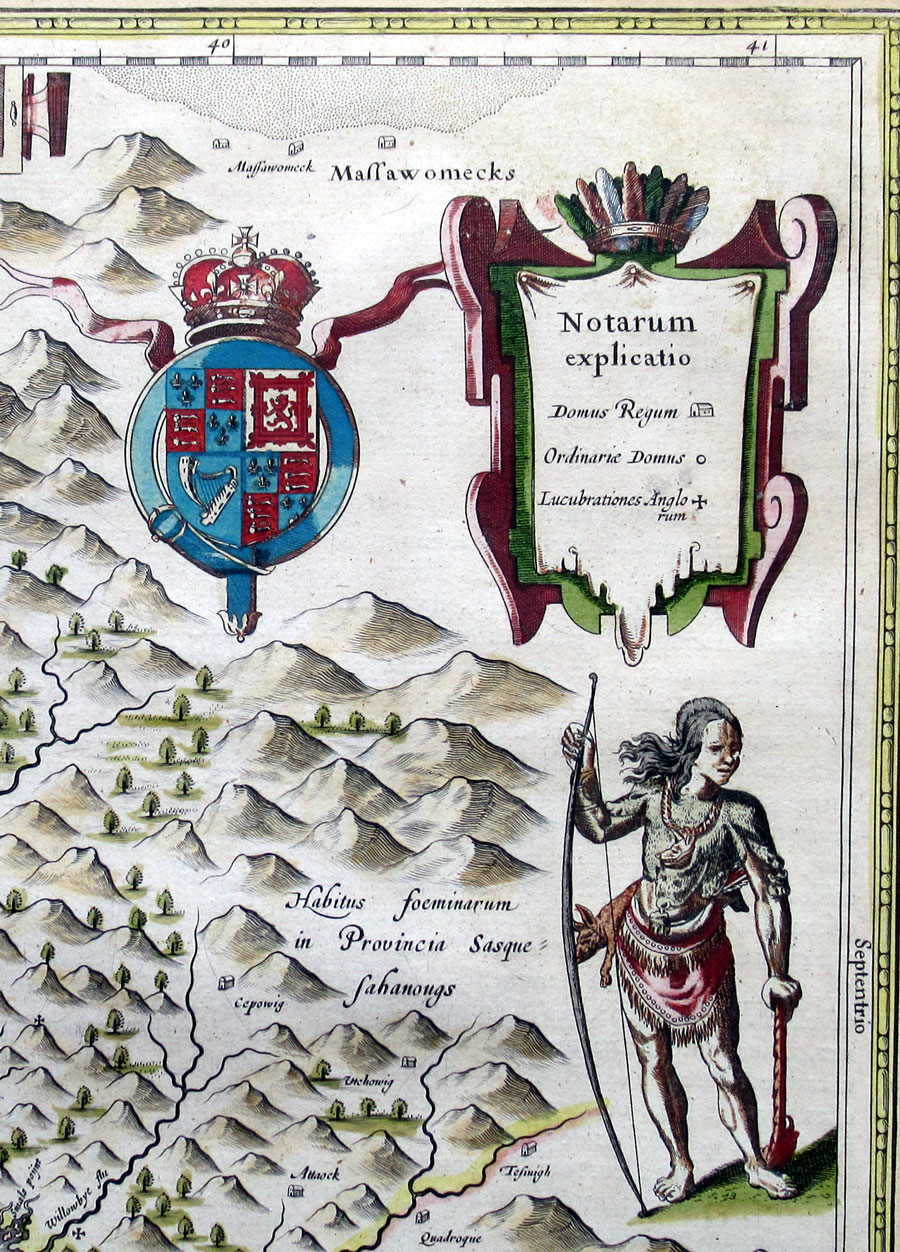 40
41
Maſſawomeck
Maſſawomecks
Notarum
explicatio
Domus Regum
Ordinariæ Domus
Lucubrationes Anglo
rum
Habitus foeminarum
in Provincia Sasque⸗
ſahanougs
Septentrio
Cepowig
Utchowig
Attaock
Teſinigh
Quadroque
Willowbye flu